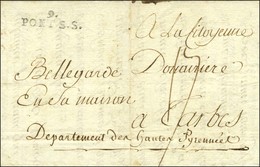 9.
PORT S.S.
A La Citoyenne
Douairiere
Bellegarde
En sa maison
a Tarbes
Departement des hautes Pyrennées